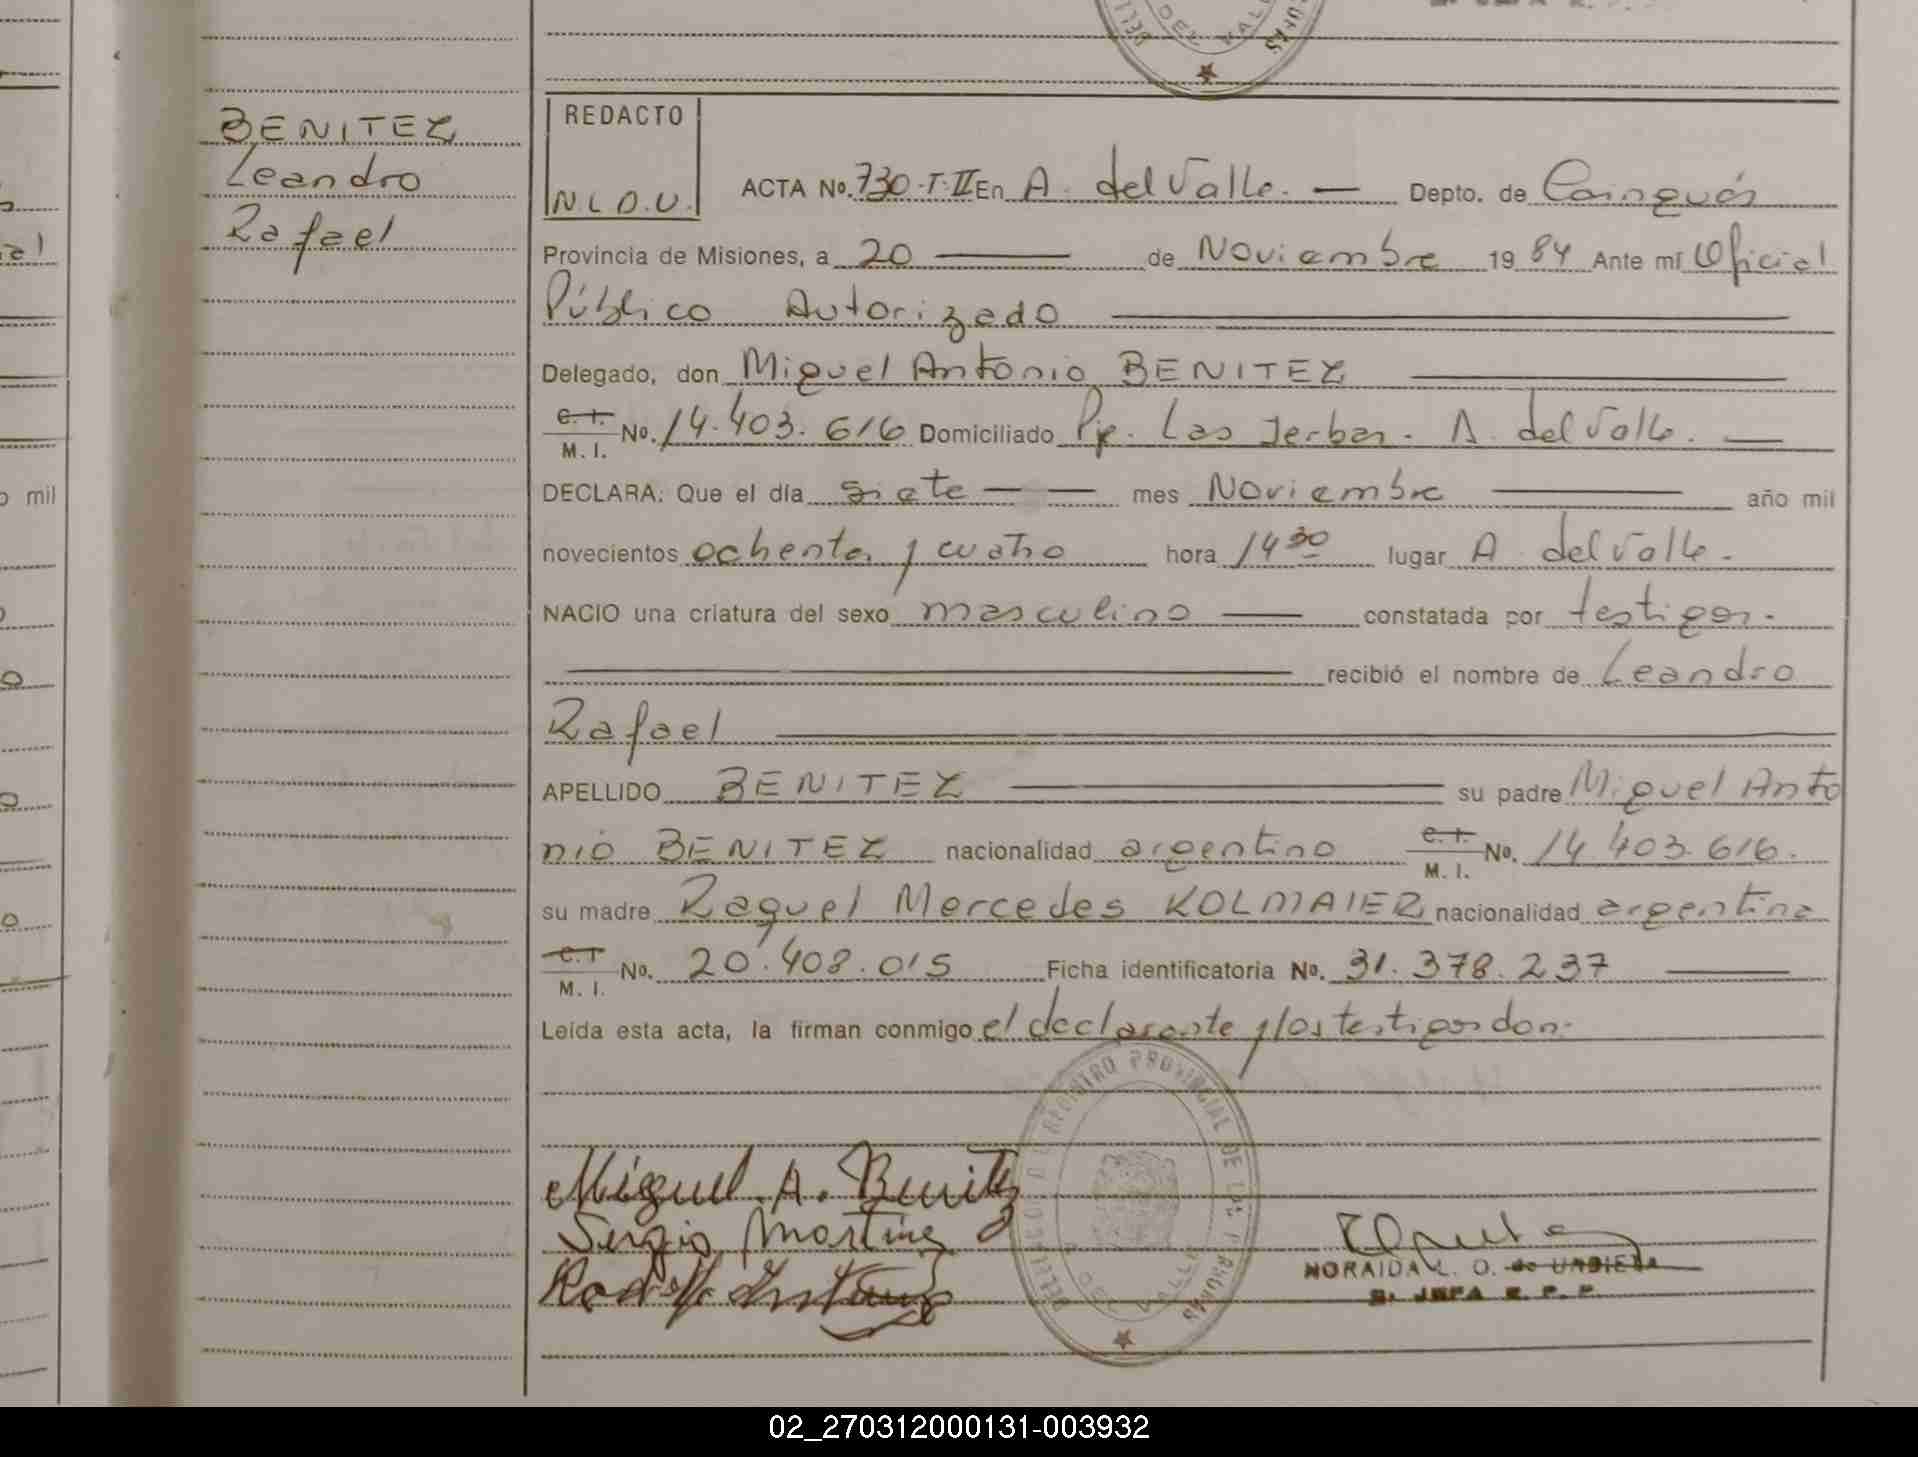 BENITEZ
Leandro
Rafael
REDACTO
N.L.O.U.
ACTA No. 730.T.II En A. del Valle. — Depto. de Cainguás
Provincia de Misiones, a 20 — de Noviembre 1984 Ante mí Oficial
Público Autorizado
Delegado, don Miguel Antonio BENITEZ
C. I. M. I. No. 14.403.616 Domiciliado Pje. Las Yerbas. A. del Valle. —
DECLARA: Que el día siete — — mes Noviembre — año mil
novecientos ochenta y cuatro hora 14 30 lugar A. del Valle.
NACIO una criatura del sexo masculino — constatada por testigos.
— recibió el nombre de Leandro
Rafael
APELLIDO BENITEZ — su padre Miguel Anto
nio BENITEZ nacionalidad argentino C. I. M. I. No. 14.403.616.
su madre Raquel Mercedes KOLMAIER nacionalidad argentina
C. I. M. I. No. 20.408.015 Ficha identificatoria No. 31.378.237 —
Leída esta acta, la firman conmigo el declarante y los testigos don:
REGISTRO PROVINCIAL DE LAS PERSONAS
DEL VALLE
Miguel A. Benitez
Sergio Martinez
NORAIDA L. O. de URBIETA
JEFA R. P. P.
o mil
02_270312000131-003932